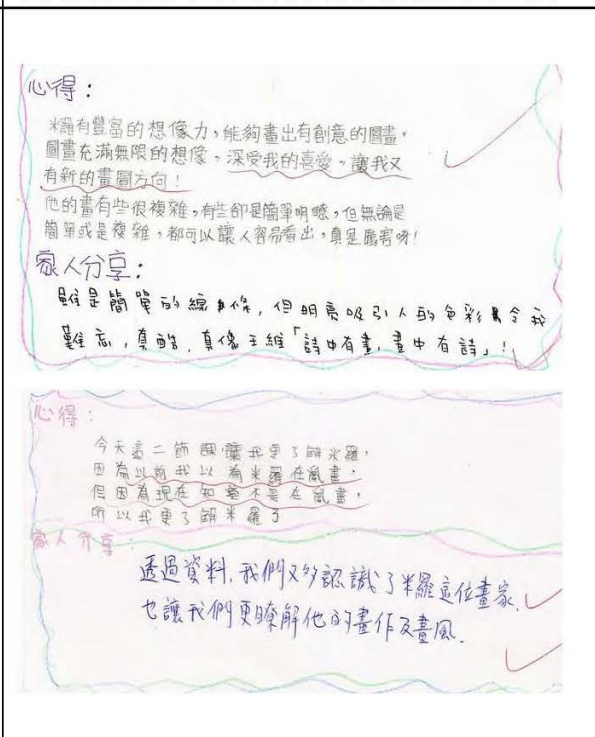 心得：
米羅有豐富的想像力，能夠畫出有創意的圖畫。
圖畫充滿無限的想像。深受我的喜愛。讓我又
有新的畫圖方向！
他的畫有些很複雜，有些卻是簡單明瞭，但無論是
簡單或是複雜，都可以讓人容易看出，真是厲害呀！
家人分享：
雖是簡單的線條，但明亮吸引人的色彩令我
難忘，真酷，真像王維「詩中有畫，畫中有詩」！
心得：
今天這二節課讓我更了解米羅，
因為以前我以為米羅在亂畫，
但因為現在知道不是在亂畫，
所以我更了解米羅了
家人分享：
透過資料，我們又多認識了米羅這位畫家，
也讓我們更瞭解他的畫作及畫風。